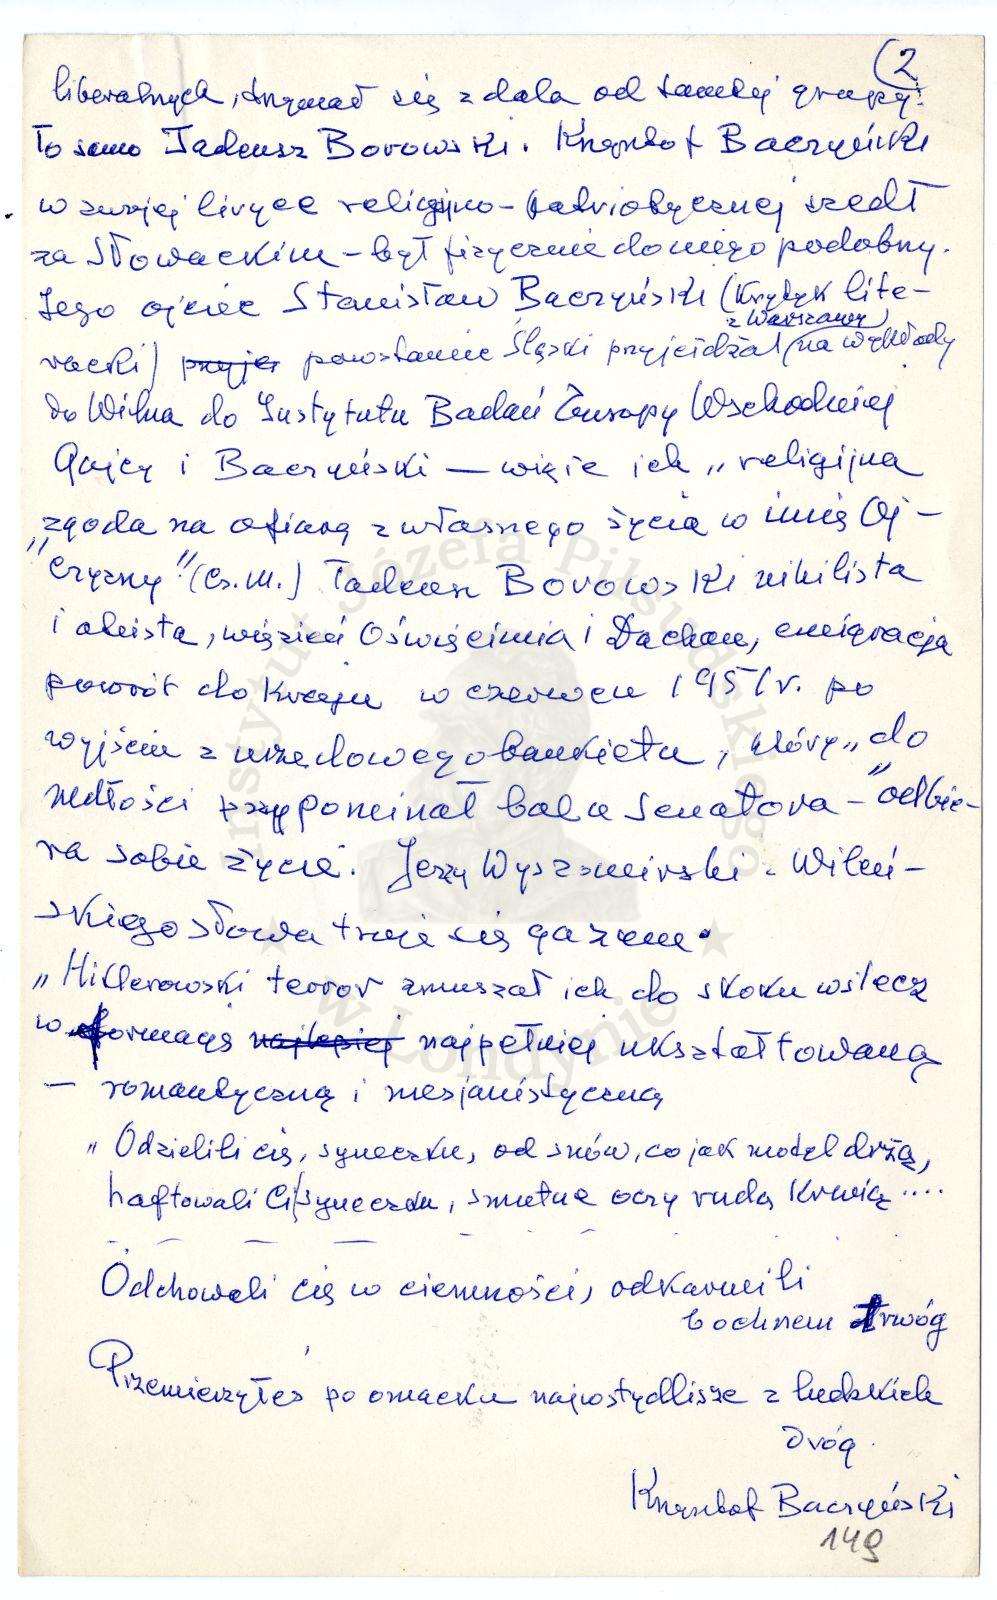 (2
liberalnych, trzymał się z dala od tamtej grupy.
To samo Tadeusz Borowski. Krzysztof Baczyński
w swojej liryce religijno-patriotycznej szedł
za Słowackim - był fizycznie do niego podobny.
Jego ojciec Stanisław Baczyński (Krytyk lite-
z Warszawy
racki) przyje powstaniec Śląski przyjeżdżał (na wykłady
do Wilna do Instytutu Badań Europy Wschodniej
Gajcy i Baczyński — wizie ich „religijna
zgoda na ofiarę z własnego życia w imię Oj-
czyzny" (Cz. M.) Tadeusz Borowski nihilista
i ateista, więzień Oświęcimia i Dachau, emigracja
powrót do Kraju w czerwcu 1951 r. po
wyjściu z urzędowego bankietu, który „do
mdłości przypominał bal u Senatora - " odbie-
ra sobie życie. Jerzy Wyszomirski z Wileń-
skiego słowa truje się gazem.
„Hitlerowski terror zmuszał ich do skoku wstecz
w formację najlepiej najpełniej ukształtowaną
— romantyczną i mesjanistyczną
„Odzielili cię, syneczku, od snów, co jak motyl drżą,
haftowali Ci, syneczku, smutne oczy rudą Krwią ....
Odchowali cię w ciemności, odkarmili
bochnem trwóg
Przemierzyłeś po omacku najwstydlisze z ludzkich
dróg.
Krzysztof Baczyński
149
Instytut Józefa Piłsudskiego
w Londynie